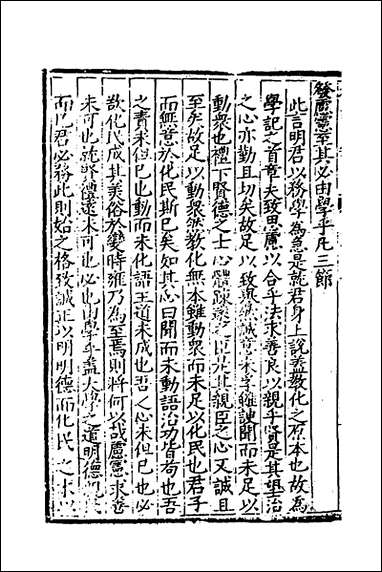 發慮憲至其必由學乎凡三節
此言明君以務學為急是就君身上說蓋教化之原本也故為
學記之首章夫致思慮以合乎法求善良以親乎賢是其望治
之心亦勤且切矣故足以致譽然誠意未孚雖謏聞而未足以
動衆也禮下賢德之士心體踈遠之臣其親臣之心又誠且
至矣故足以動衆然教化無本雖動衆而未足以化民也君子
而無意於化民斯已矣如其心曰聞而未動語治功者有也吾
之責未但已也動而未化語王道未成也吾之心未但已也必
欲化民成其美俗於變時雍乃為至焉則將何以哉慮憲求善
未可也就賢體遠未可也必也由學乎蓋大學之道明德
而以君必務此則始之格致誠正以明明德而化民之本以